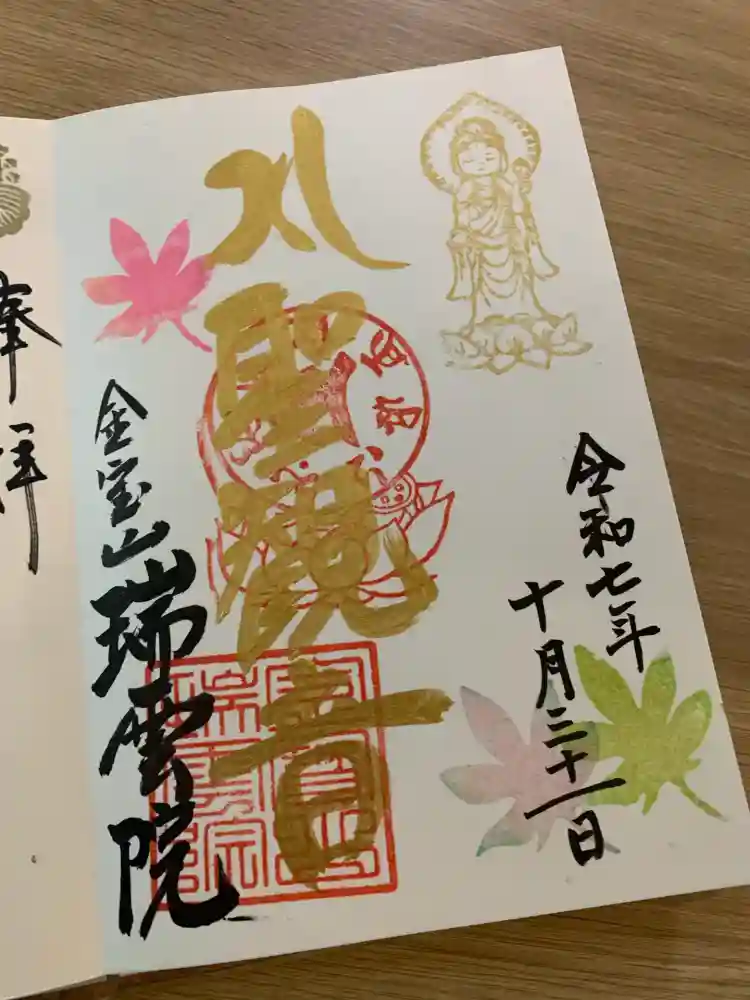 令和七年
十月三十一日
聖観音
金宝山瑞雲院
奉拝